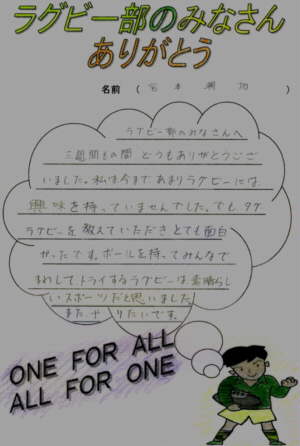 ラグビー部のみなさん
ありがとう
名前 ( 本 )
ラグビー部のみなさんへ
三週間もの間 どうもありがとうござ
いました。私は今まであまりラグビーには
興味を持っていませんでした。でも タグ
ラグビーを教えていただき とても面白
かったです。ボールを持ってみんなで
まわしてトライするラグビーは素晴らし
いスポーツだと思いました。
また やりたいです。
ONE FOR ALL
ALL FOR ONE